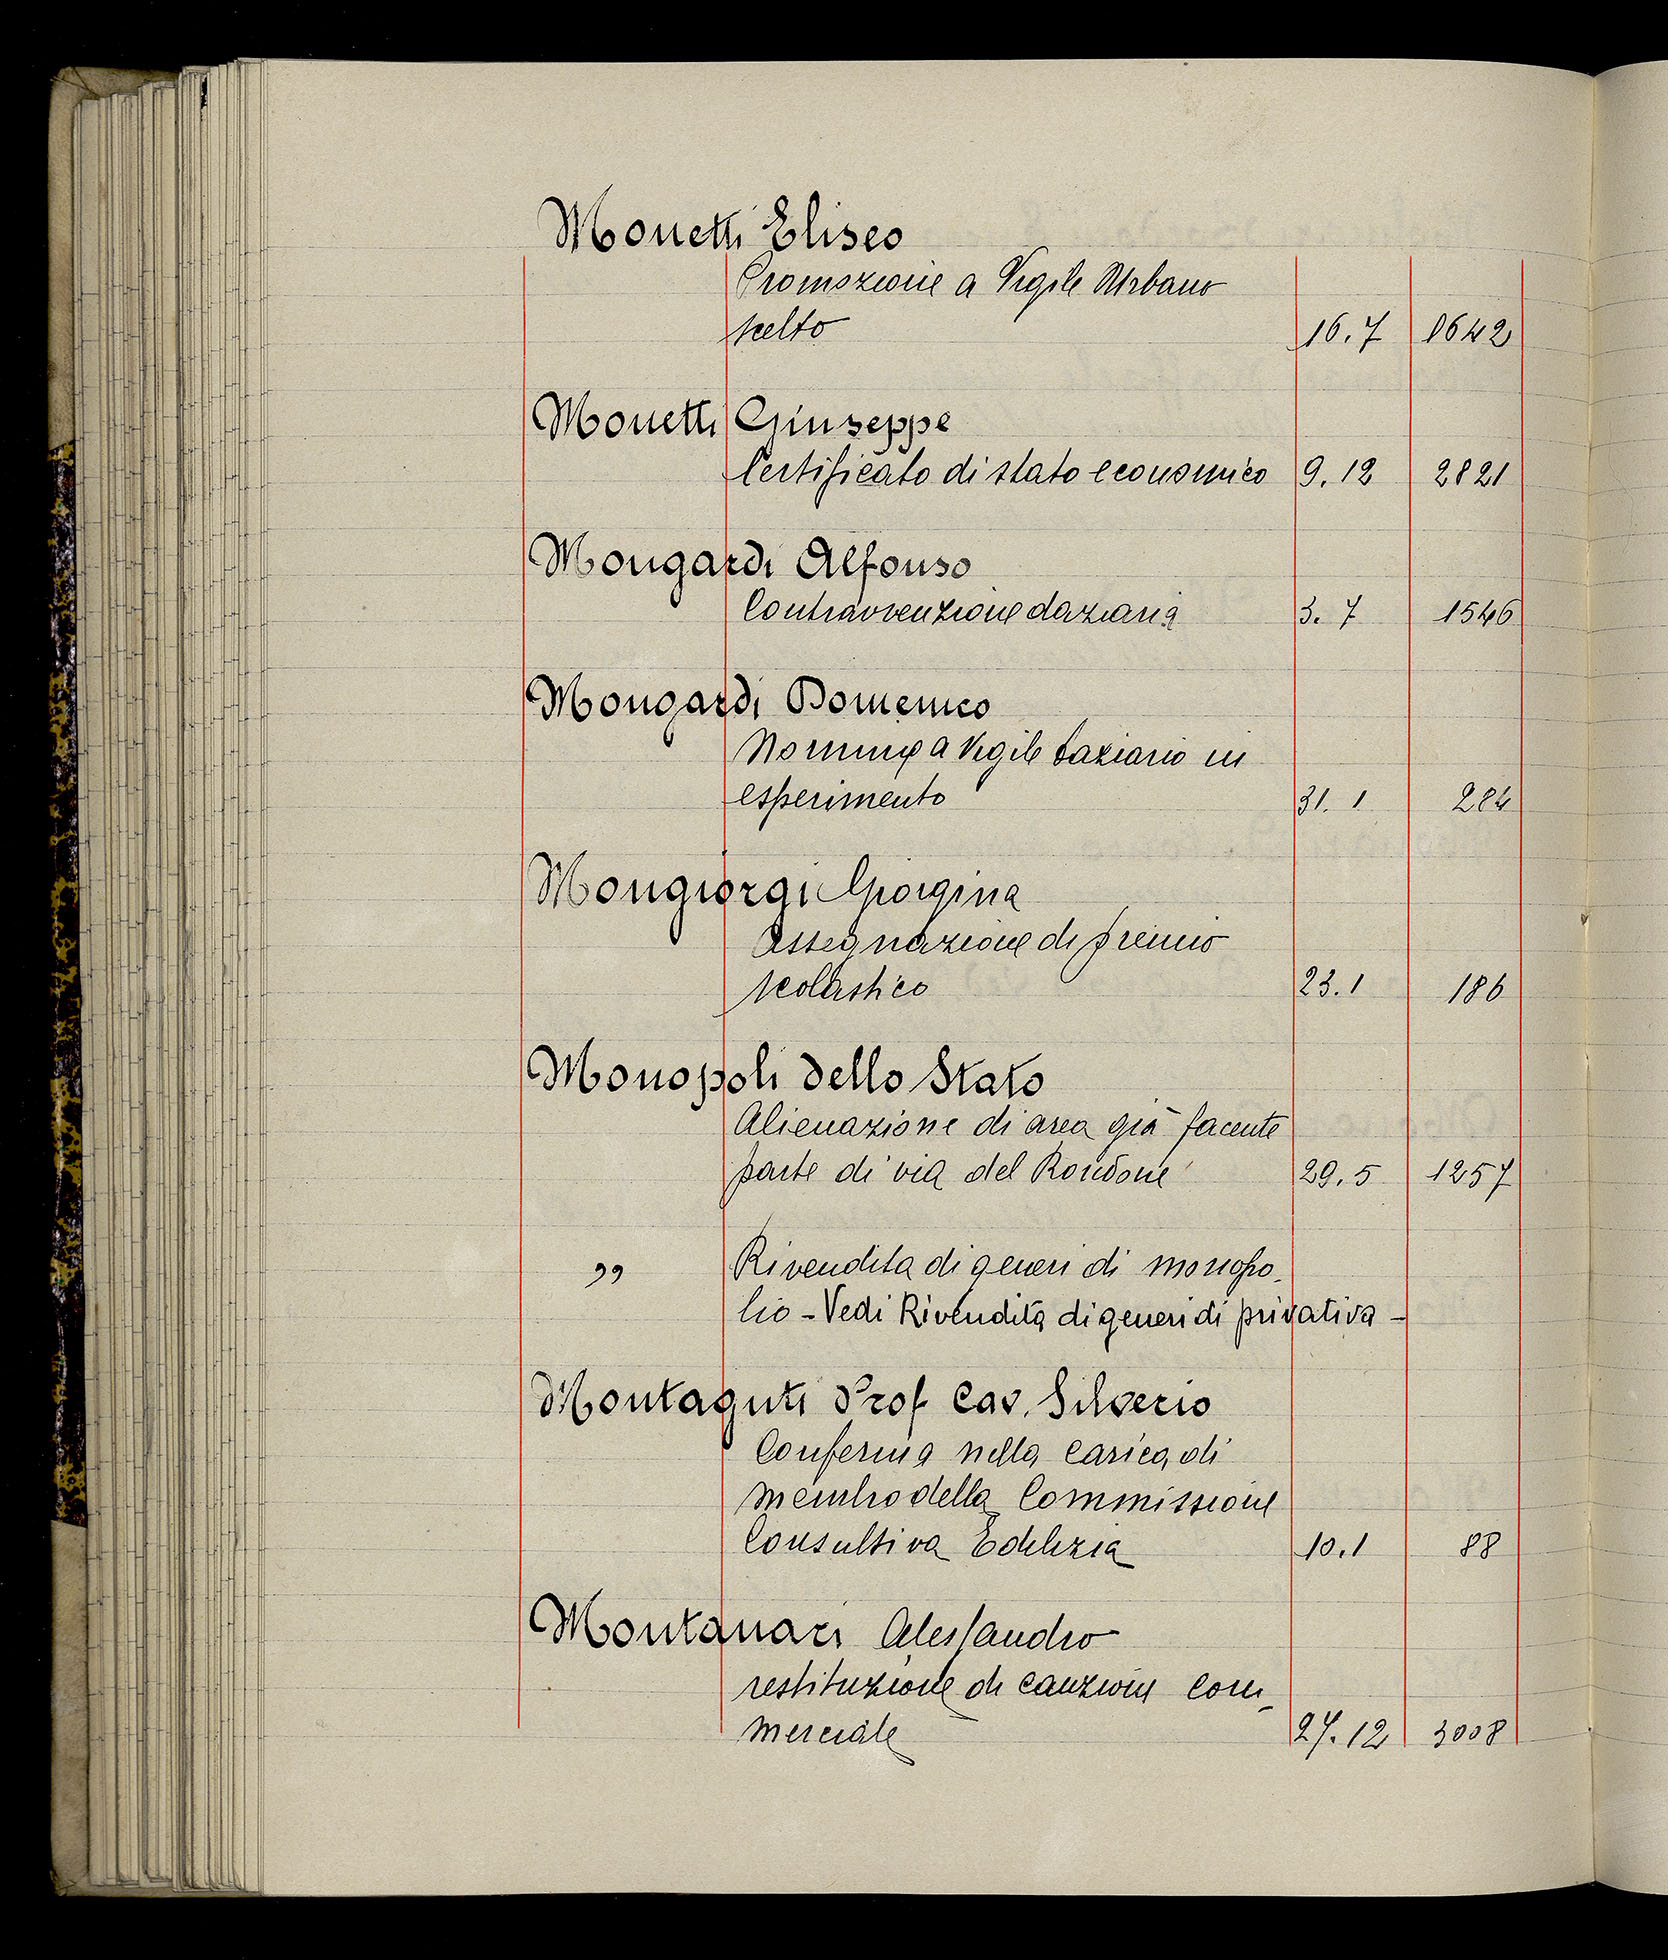 Monetti Eliseo
Promozione a Vigile Urbano
scelto 16.7 1642
Monetti Giuseppe
Certificato di stato economico 9.12 2821
Mongardi Alfonso
Contravvenzione daziaria 3.7 1546
Mongardi Domenico
Nomina a Vigile Daziario in
esperimento 31.1 284
Mongiorgi Giorgina
Assegnazione di premio
scolastico 23.1 186
Monopoli dello Stato
Alienazione di area già facente
parte di via del Rondone 29.5 1257
" Rivendita di generi di monopo-
lio - Vedi Rivendita di generi di privativa -
Montaguti Prof. Cav. Silverio
Conferma nella carica di
membro della Commissione
Consultiva Edilizia 10.1 88
Montanari Alessandro
restituzione di cauzione com-
merciale 27.12 3008